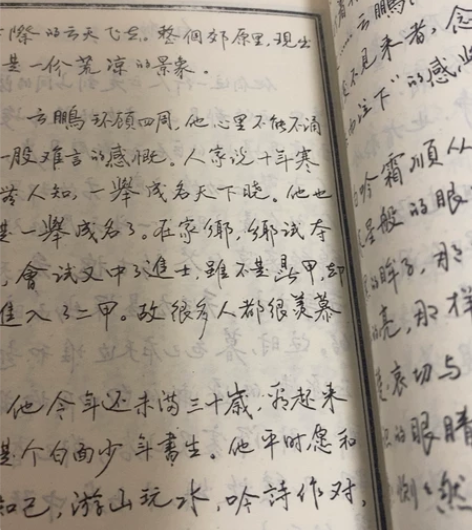 際的云天飞去。整個郊原里,現出
是一份荒凉的景象。
云鵬环顾四周,他心里不能不涌
一股难言的感慨。人家说十年寒
人知,一舉成名天下晓。他也
是一舉成名了。在家鄉,鄉试夺
,會试又中了進士,虽不是鼎甲,却
進入了二甲。故很多人都很羡慕
他今年还未满三十歲,看起来
是个白面少年書生。他平时愿和
知己,游山玩水,吟詩作对,
云鵬
不見来者,念
下"的感
吟霜順从
星般的眼
的眸子,那
亮,那样
哀切与
的眼睛
然